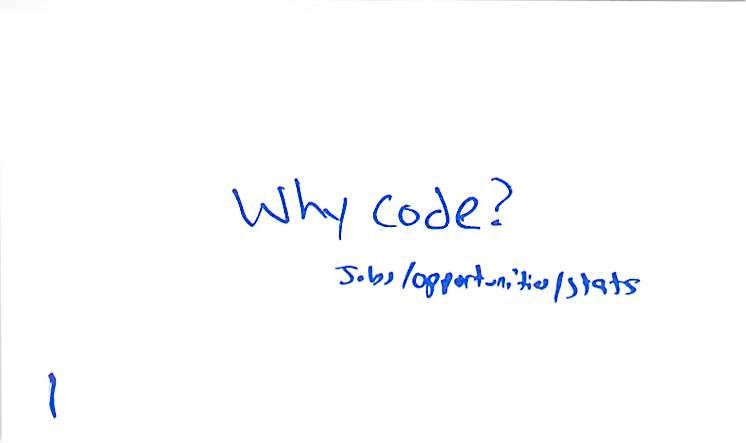 Why code?
Jobs/opportunities/stats
1